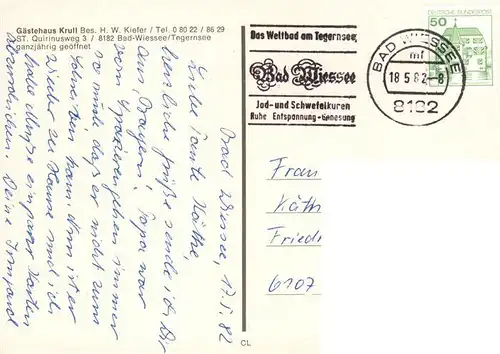 Gästehaus Krull Bes. H. W. Kiefer / Tel. 0 80 22 / 86 29
ST. Quirinusweg 3 / 8182 Bad-Wiessee/Tegernsee
ganzjährig geöffnet
Bad Wiessee, 17.5.82
Liebe Tante Käthe,
herzliche Grüße sende ich Dir
aus Bayern. Papa war
so müde, daß er nicht zum
Spazierengehen immer
fahren kann. Nun ist er
wieder zu Hause und ich
habe Muße ein paar Karten
zu schreiben. Deine Irmgard
Das Weltbad am Tegernsee;
Bad Wiessee
Jod- und Schwefelkuren
Ruhe Entspannung - Genesung
BAD WIESSEE
mf
18.5.82-8
8182
DEUTSCHE BUNDESPOST
50
Frau
Käth
Fried
6107
CL